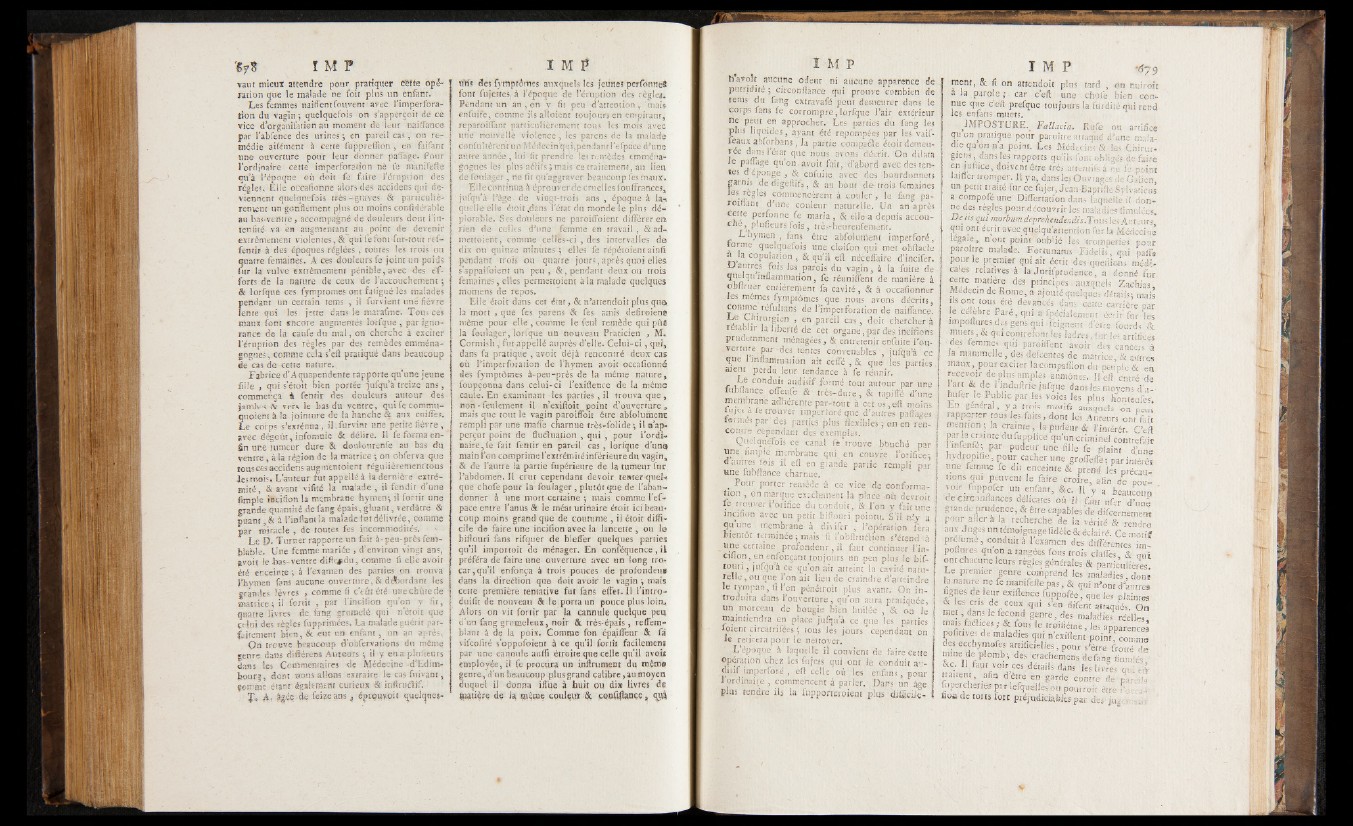 678 IMP
vaut mieux attendre pour pratiquer cette opé-
ration que le malade ne ſoit plus un enfant.
Les femmes naiſſent ſouvent avec l'imperfora-
tion du vagin; quelquefois on s'apperçoit de ce
vice d'organiſation au moment de leur naiſſance
par l'abſence des urines; en pareil cas, on re-
médie aiſément à cette ſuppreſſion, en faiſant
une ouverture pour leur donner paſſage. Pour
l'ordinaire cette imperforation ne ſe manifeſte
qu'à l'époque où doit ſe faire l'éruption des
règles. Elle occaſionne alors des accidens qui de-
viennent quelquefois très-graves & particuliè-
rement un gonflement plus ou moins conſidérable
au bas-ventre, accompagné de douleurs dont l'in-
tenſité va en augmentant au point de devenir
extrêmement violentes, & qui ſe font ſur-tout reſ-
ſentir à des époques réglées, toutes les trois ou
quatre ſemaines. A ces douleurs ſe joint un poids
ſur la vulve extrêmement pénible, avec des ef-
forts de la nature de ceux de l'accouchement;
& lorſque ces ſymptomes ont fatigué les malades
pendant un certain tems, il ſurvient une fièvre
lente qui les jette dans le maraſme. Tous ces
maux ſont encore augmentés lorſque, par igno-
rance de la cauſe du mal, on cherche à exciter
l'éruption des règles par des remèdes emména-
gogues, comme cela s'eſt pratiqué dans beaucoup
de cas de cette nature.
Fabrice d'Aquapendente rapporte qu'une jeune
fille, qui s'étoit bien portée juſqu'à treize ans,
commença à ſentir des douleurs autour des
jambes & vers le bas du ventre, qui ſe commu-
quoient à la jointure de la hanche & aux cuiſſes.
Le corps s'exténua, il ſurvint une petite fièvre,
avec dégoût, inſomnie & délire. Il ſe forma en-
fin une tumeur dure & douloureuſe au bas du
ventre, à la région de la matrice; on obſerva que
tous ces accidens augmentoient régulièrement tous
les mois. L'auteur fut appellé à la dernière extré-
mité, & ayant viſité la malade, il fendit d'une
ſimple inciſion la membrane hymen; il ſortit une
grande quantité de ſang épais, gluant, verdâtre &
puant, & à l'inſtant la malade fut délivrée, comme
par miracle, de toutes ſes incommodités.
Le D. Turner rapporte un fait à-peu-près ſem-
blable. Une femme mariée, d'environ vingt ans,
avoit le bas-ventre diſtendu, comme ſi elle avoit
été enceinte; à l'examen des parties on trouva
l'hymen ſans aucune ouverture, & débordant les
grandes lèvres, comme ſi c'eût été une chûte de
matrice; il ſortit, par l'inciſion qu'on y fit,
quatre livres de ſang grumelé qui n'étoit que
celui des règles ſupprimées. La malade guérit par-
faitement bien, & eut un enfant, un an après.
On trouve beaucoup d'obſervations du même
genre dans différens Auteurs; il y en a pluſieurs
dans les Commentaires de Médecine d'Edim-
bourg, dont nous allons extraire le cas ſuivant,
comme étant également curieux & inſtructif.
T. A. âgée de ſeize ans, éprouvoit quelques-
IMP
uns des ſymptômes auxquels les jeunes perſonnes
ſont ſujettes, à l'époque de l'éruption des règles.
Pendant un an, on y fit peu d'attention, mais
enſuite, comme ils alloient toujours en empirant,
reparoiſſant particulièrement tous les mois avec
une nouvelle violence, les parens de la malade
conſultèrent un Médecin qui, pendant l'eſpace d'une
autre année, lui fit prendre les remèdes emména-
gogues les plus actifs; mais ce traitement, au lieu
de ſoulager, ne fit qu'aggraver beaucoup les maux.
Elle continua à éprouver de cruelles ſouffrances,
juſqu'à l'âge de vingt-trois ans, époque à la-
quelle elle étoit dans l'état du monde le plus dé-
plorable. Ses douleurs ne paroiſſoient différer en
rien de celles d'une femme en travail, & ad-
mettoient, comme celles-ci, des intervalles de
dix ou quinze minutes; elles ſe répétoient ainſi
pendant trois ou quatre jours, après quoi elles
s'appaiſoient un peu, &, pendant deux ou trois
ſemaines, elles permettoient à la malade quelques
momens de repos.
Elle étoit dans cet état, & n'attendoit plus que
la mort, que ſes parens & ſes amis deſiroient
même pour elle, comme le ſeul remède qui pût
la ſoulager, lorſque un nouveau Praticien, M.
Cormish, fut appellé auprès d'elle. Celui-ci, qui,
dans ſa pratique, avoit déjà rencontré deux cas
où l'imperforation de l'hymen avoit occaſionné
des ſymptômes à-peu-près de la même nature,
ſoupçonna dans celui-ci l'exiſtence de la même
cauſe. En examinant les parties, il trouva que,
non-ſeulement il n'exiſtoit point d'ouverture,
mais que tout le vagin paroiſſoit être abſolument
rempli par une maſſe charnue très-ſolide; il n'ap-
perçut point de fluctuation, qui, pour l'ordi-
naire, ſe fait ſentir en pareil cas, lorſque d'une
main l'on comprime l'extrémité inférieure du vagin,
& de l'autre la partie ſupérieure de la tumeur ſur
l'abdomen. Il crut cependant devoir tenter quel-
que choſe pour la ſoulager, plutôt que de l'aban-
donner à une mort certaine; mais comme l'eſ-
pace entre l'anus & le méat urinaire étoit ici beau-
coup moins grand que de coutume, il étoit diffi-
cile de faire une inciſion avec la lancette, ou le
biſtouri ſans riſquer de bleſſer quelques parties
qu'il importoit de ménager. En conſéquence, il
préféra de faire une ouverture avec un long tro-
car, qu'il enfonça à trois pouces de profondeur
dans la direction que doit avoir le vagin; mais
cette première tentative fut ſans effet. Il l'intro-
duiſit de nouveau & le porta un pouce plus loin.
Alors on vit ſortir par la cannule quelque peu
d'un ſang grumeleux, noir & très-épais, reſſem-
blant à de la poix. Comme ſon épaiſſeur & ſa
viſcoſité s'oppoſoient à ce qu'il ſortît facilement
par une cannule auſſi étroite que celle qu'il avoit
employée, il ſe procura un inſtrument du même
genre, d'un beaucoup plus grand calibre, au moyen
duquel il donna iſſue à huit ou dix livres de
matière de la même couleur & conſiſtance, qui
IMP
n'avoit aucune odeur ni aucune apparence de
putridité; circonſtance qui prouve combien de
tems du ſang extravaſé peut demeurer dans le
corps ſans ſe corrompre, lorſque l'air extérieur
ne peut en approcher. Les parties du ſang les
plus liquides, ayant été repompées par les vaiſ-
ſeaux abſorbans, la partie compacte étoit demeu-
rée dans l'état que nous avons décrit. On dilata
le paſſage qu'on avoit fait, d'abord avec des ten-
tes d'éponge, & enſuite avec des bourdonnets
garnis de digeſtifs, & au bout de trois ſemaines
les règles commencèrent à couler, le ſang pa-
roiſſant d'une couleur naturelle. Un an après
cette perſonne ſe maria, & elle a depuis accou-
ché, pluſieurs fois, très-heureuſement.
L'hymen, ſans être abſolument imperforé,
forme quelquefois une cloiſon qui met obſtacle
à la copulation, & qu'il eſt néceſſaire d'inciſer.
D'autres fois les parois du vagin, à la ſuite de
quelqu'inflammation, ſe réuniſſent de manière à
obſtruer entièrement ſa cavité, & à occaſionner
les mêmes ſymptômes que nous avons décrits,
comme réſultans de l'imperforation de naiſſance.
Le Chirurgien, en pareil cas, doit chercher à
rétablir la liberté de cet organe, par des inciſions
prudemment ménagées, & entretenir enſuite l'ou-
verture par des tentes convenables, juſqu'à ce
que l'inflammation ait ceſſé, & que les parties
aient perdu leur tendance à ſe réunir.
Le conduit auditif formé tout autour par une
ſubſtance oſſeuſe & très-dure, & tapiſſé d'une
membrane adhérente par-tout à cet os, eſt moins
ſujet à ſe trouver imperforé que d'autres paſſages
formés par des parties plus flexibles; on en ren-
contre cependant des exemples.
Quelquefois ce canal ſe trouve bouché par
une ſimple membrane qui en couvre l'orifice;
d'autres fois il eſt en grande partie rempli par
une ſubſtance charnue.
Pour porter remède à ce vice de conforma-
tion, on marque exactement la place où devroit
ſe trouver l'orifice du conduit, & l'on y fait une
inciſion avec un petit biſtouri pointu. S'il n'y a
qu'une membrane à diviſer, l'opération ſera
bientôt terminée; mais ſi l'obſtruction s'étend à
une certaine profondeur, il faut continuer l'in-
ciſion, en enfonçant toujours un peu plus le biſ-
touri, juſqu'à ce qu'on ait atteint la cavité natu-
relle, ou que l'on ait lieu de craindre d'atteindre
le tympan, ſi l'on pénétroit plus avant. On in-
troduira dans l'ouverture, qu'on aura pratiquée,
un morceau de bougie bien huilée, & on le
maintiendra en place juſqu'à ce que les parties
ſoient cicatriſées; tous les jours cependant on
le retirera pour le nettoyer.
L'époque à laquelle il convient de faire cette
opération chez les ſujets qui ont le conduit au-
ditif imperforé, eſt celle où les enfans, pour
l'ordinaire, commencent à parler. Dans un âge
plus tendre ils la ſupporteroient plus difficile-
IMP 679
ment, & ſi on attendoit plus tard, on nuiroit
à la parole; car c'eſt une choſe bien con-
nue que c'eſt preſque toujours la ſurdité qui rend
les enfans muets.
IMPOSTURE. Fallacia. Ruſe ou artifice
qu'on pratique pour paroître attaqué d'une mala-
die qu'on n'a point. Les Médecins & les Chirur-
giens, dans les rapports qu'ils ſont obligés de faire
en juſtice, doivent être très attentifs à ne ſe point
laiſſer tromper. Il y a, dans les Ouvrages de Galien,
un petit traité ſur ce ſujet, Jean-Baptiſte Sylvaticus
a compoſé une Diſſertation dans laquelle il don-
ne des règles pour découvrir les maladies ſimulées.
De iis qui morbum deprehendendis. Tous les Auteurs,
qui ont écrit avec quelqu'attention ſur la Médecine
légale, n'ont point oublié les tromperies pour
paroître malade. Fortunatus Fidelis, qui paſſe
pour le premier qui ait écrit des queſtions médi-
cales relatives à la Juriſprudence, a donné ſur
cette matière des principes auxquels Zachias,
Médecin de Rome, a ajouté quelques détails; mais
ils ont tous été devancés dans cette carrière par
le célèbre Paré, qui a ſpécialement écrit ſur les
impoſtures des gens qui feignent d'être ſourds &
muets, & qui contrefont les ladres, ſur les artifices
des femmes qui paroiſſent avoir des cancers à
la mammelle, des deſcentes de matrice, & autres
maux, pour exciter la compaſſion du peuple & en
recevoir de plus amples aumônes. Il eſt entré de
l'art & de l'induſtrie juſque dans les moyens d'a-
buſer le Public par les voies les plus honteuſes.
En général, y a trois motifs auxquels on peut
rapporter tous les faits, dont les Auteurs ont fait
mention; la crainte, la pudeur & l'intérêt. C'eſt
par la crainte du ſupplice qu'un criminel contrefait
l'inſenſé; par pudeur une fille ſe plaint d'une
hydropiſie, pour cacher une groſſeſſe; par intérêt
une femme ſe dit enceinte & prend les précau-
tions qui peuvent le faire croire, afin de pou-
voir ſuppoſer un enfant, &c. Il y a beaucoup
de circonſtances délicates où il faut uſer d'une
grande prudence, & être capables de diſcernement
pour aller à la recherche de la vérité & rendre
aux Juges un témoignage fidèle & éclairé. Ce motif
préſumé, conduit à l'examen des différentes im-
poſtures qu'on a rangées ſous trois claſſes, & qui
ont chacune leurs règles générales & particulières.
Le premier genre comprend les maladies, dont
la nature ne ſe manifeſte pas, & qui n'ont d'autres
ſignes de leur exiſtence ſuppoſée, que les plaintes
& les cris de ceux qui s'en diſent attaqués. On
met, dans le ſecond genre, des maladies réelles,
mais factices; & ſous le troiſième, les apparences
poſitives de maladies qui n'exiſtent point, comme
des ecchymoſes artificielles, pour s'être frotté de
mine de plomb, des crachemens de ſang ſimulés,
&c. Il faut voir ces détails dans les livres qui en
traitent, afin d'être en garde contre de pareilles
ſupercheries par leſquelles on pourroit être
ſion de torts fort préjudiciables par des